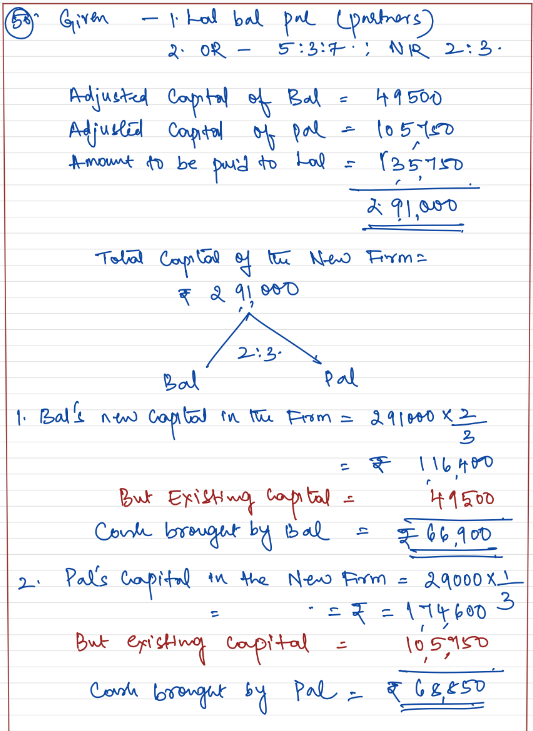 50. Given - 1. Lal bal pal (partners)
2. OR - 5:3:7 ; NR 2:3.
Adjusted Capital of Bal = 49500
Adjusted Capital of pal = 105,750
Amount to be paid to Lal = 135,750
291,000
Total Capital of the New Firm =
₹ 291,000
2:3.
Bal Pal
1. Bal's new Capital in the Firm = 291000 × 2/3
= ₹ 116,400
But Existing Capital = 49500
Cash brought by Bal = ₹ 66,900
2. Pal's Capital in the New Firm = 29000 × 1/3
= . = ₹ = 1,74,600
But existing capital = 105,750
Cash brought by Pal = ₹ 68,850